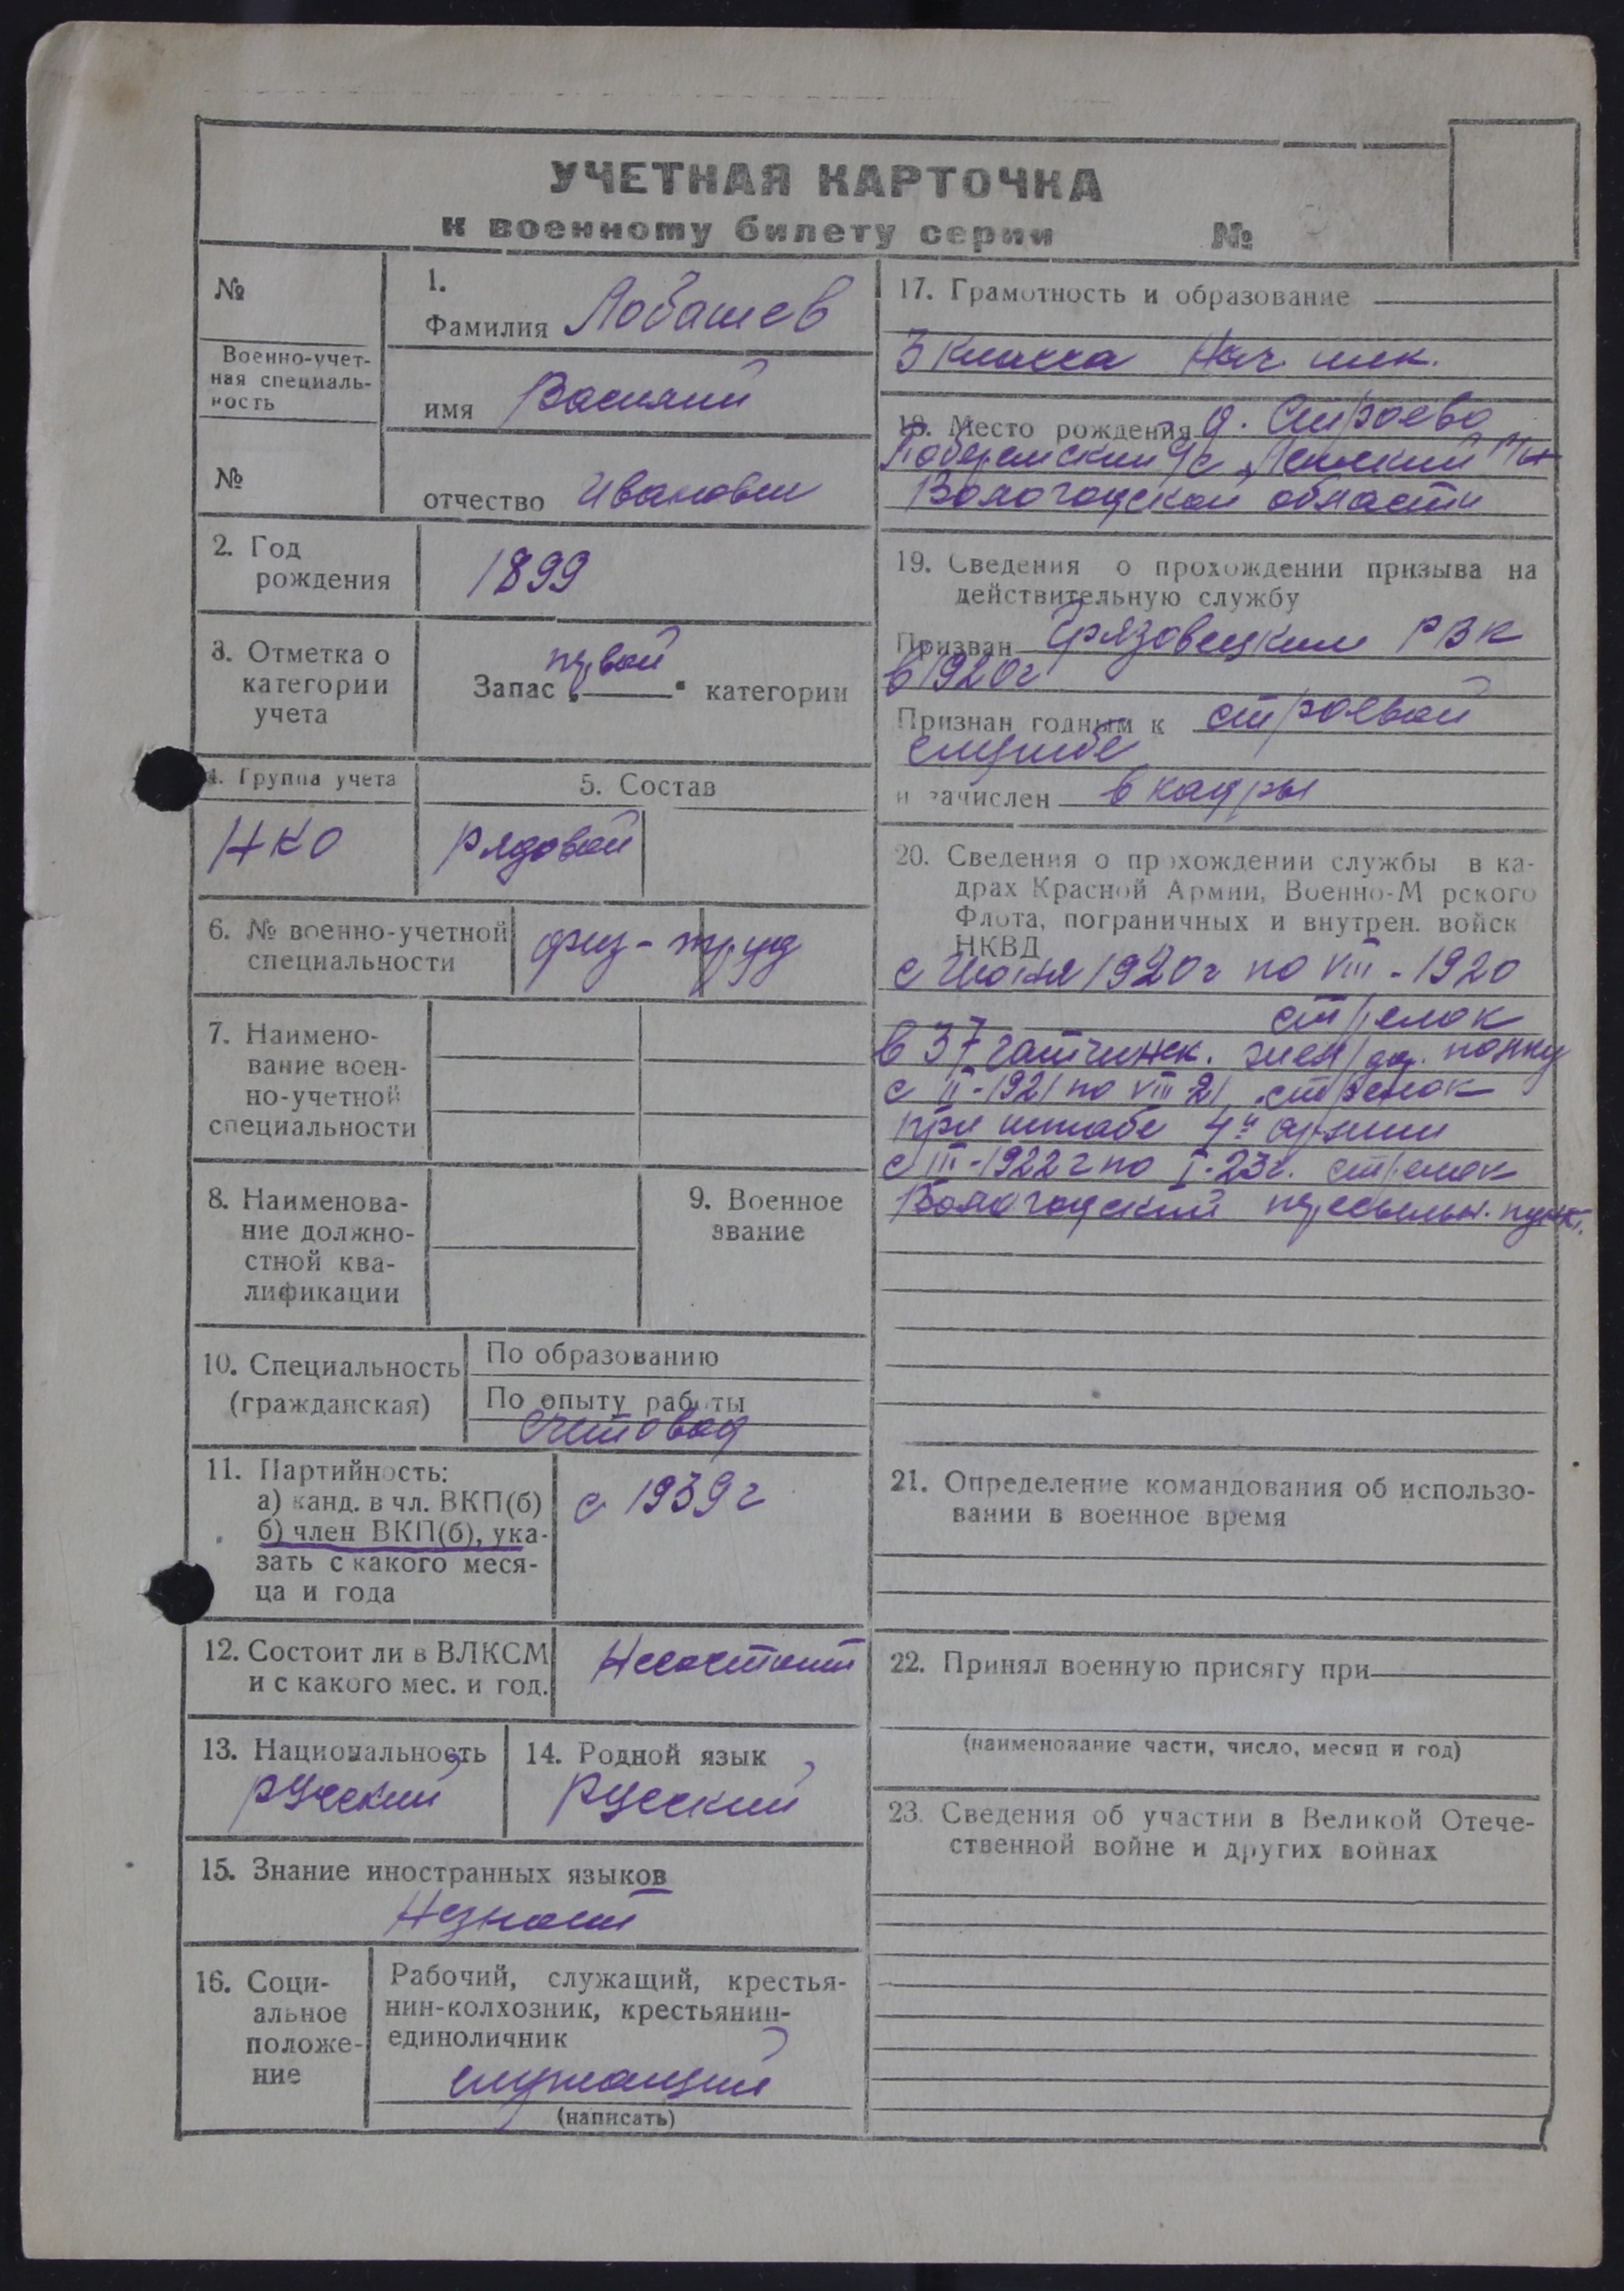 УЧЕТНАЯ КАРТОЧКА
к военному билету серии №
№
Военно-учет-
ная специаль-
ность
№
1.
Фамилия Лобашев
имя Василий
отчество Иванович
2. Год
рождения
1899
3. Отметка о
категории
учета
первой
Запас „ “ категории
4. Группа учета
НКО
5. Состав
рядовой
6. № военно-учетной
специальности
физ-труд
7. Наимено-
вание воен-
но-учетной
специальности
8. Наименова-
ние должно-
стной ква-
лификации
9. Военное
звание
10. Специальность
(гражданская)
По образованию
По опыту работы
счетовод
11. Партийность:
а) канд. в чл. ВКП(б)
б) член ВКП(б), ука-
зать с какого меся-
ца и года
с 1939 г
12. Состоит ли в ВЛКСМ
и с какого мес. и год.
Несостоит
13. Национальность
русский
14. Родной язык
русский
15. Знание иностранных языков
Незнает
16. Соци-
альное
положе-
ние
Рабочий, служащий, крестья-
нин-колхозник, крестьянин-
единоличник
служащий
(написать)
17. Грамотность и образование
3 класса Нач. шк.
18. Место рождения д. Строево
с/с
Вологодской области
19. Сведения о прохождении призыва на
действительную службу
Призван Грязовецким РВК
в 1920г
Признан годным к строевой
службе
и зачислен в кадры
20. Сведения о прохождении службы в ка-
драх Красной Армии, Военно-М рского
Флота, пограничных и внутрен. войск
НКВД
с Июня 1920г по VIII - 1920
стрелок
в 37 гатчинск. полку
с II-1921 по VIII 21 стрелок
при штабе 4й армии
с III-1922 г по I-23г. стрелок
Вологодский пересыльн. пункт.
21. Определение командования об использо-
вании в военное время
22. Принял военную присягу при
(наименование части, число, месяц и год)
23. Сведения об участии в Великой Отече-
ственной войне и других войнах